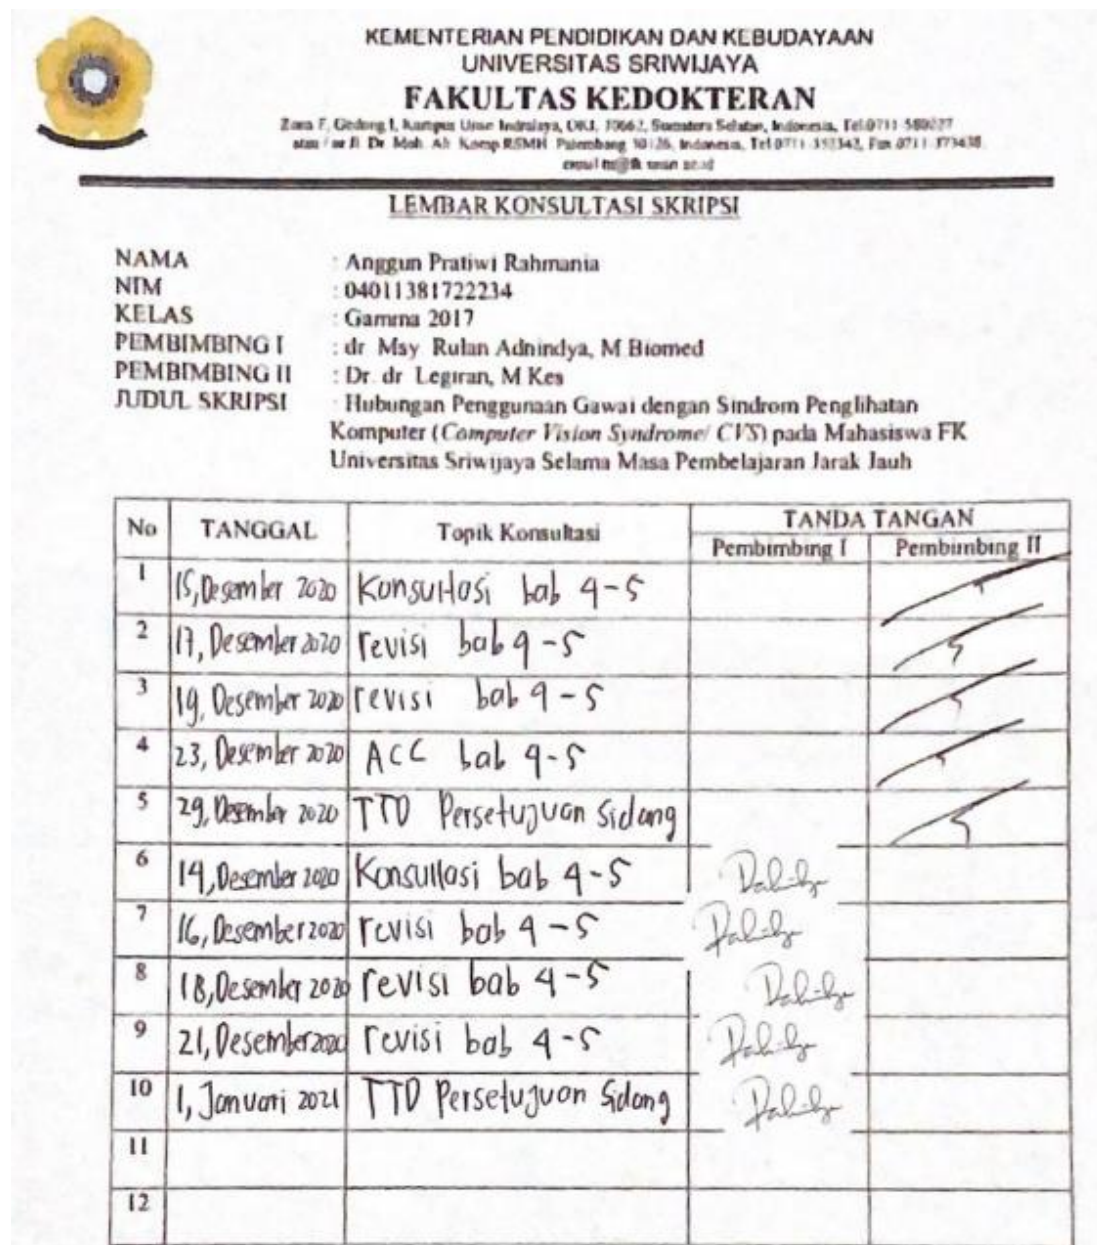 KEMENTERIAN PENDIDIKAN DAN KEBUDAYAAN
UNIVERSITAS SRIWIJAYA
FAKULTAS KEDOKTERAN
Zona F, Gedung I, Kampus Unsri Indralaya, OKI, 30662, Sumatera Selatan, Indonesia, Tel.0711-580227
Jl. Dr. Moh. Ali Komp.RSMH Palembang 30126, Indonesia, Tel.0711-352342, Fax.0711-373438,
LEMBAR KONSULTASI SKRIPSI
NAMA : Anggun Pratiwi Rahmania
NIM : 04011381722234
KELAS : Gamma 2017
PEMBIMBING I : dr Msy Rulan Adnindya, M Biomed
PEMBIMBING II : Dr. dr Legiran, M Kes
JUDUL SKRIPSI : Hubungan Penggunaan Gawai dengan Sindrom Penglihatan
Komputer (Computer Vision Syndrome/ CVS) pada Mahasiswa FK
Universitas Sriwijaya Selama Masa Pembelajaran Jarak Jauh
No TANGGAL Topik Konsultasi TANDA TANGAN
Pembimbing I Pembimbing II
1 15, Desember 2020 Konsultasi bab 4-5
2 17, Desember 2020 revisi bab 4-5
3 19, Desember 2020 revisi bab 4-5
4 23, Desember 2020 ACC bab 4-5
5 29, Desember 2020 TTD Persetujuan Sidang
6 14, Desember 2020 Konsultasi bab 4-5
7 16, Desember 2020 revisi bab 4-5
8 18, Desember 2020 revisi bab 4-5
9 21, Desember 2020 revisi bab 4-5
10 1, Januari 2021 TTD Persetujuan Sidang
11
12